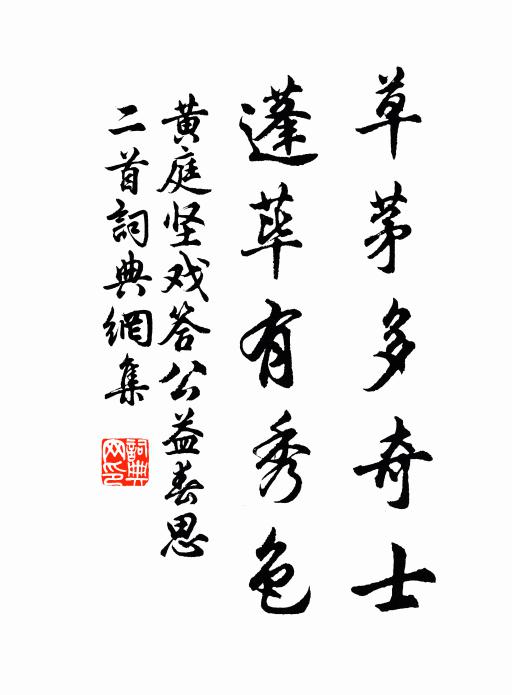 草茅多奇士
蓬荜有秀色
黄庭坚戏答公益春思
二首詞典網集
詞典
网印